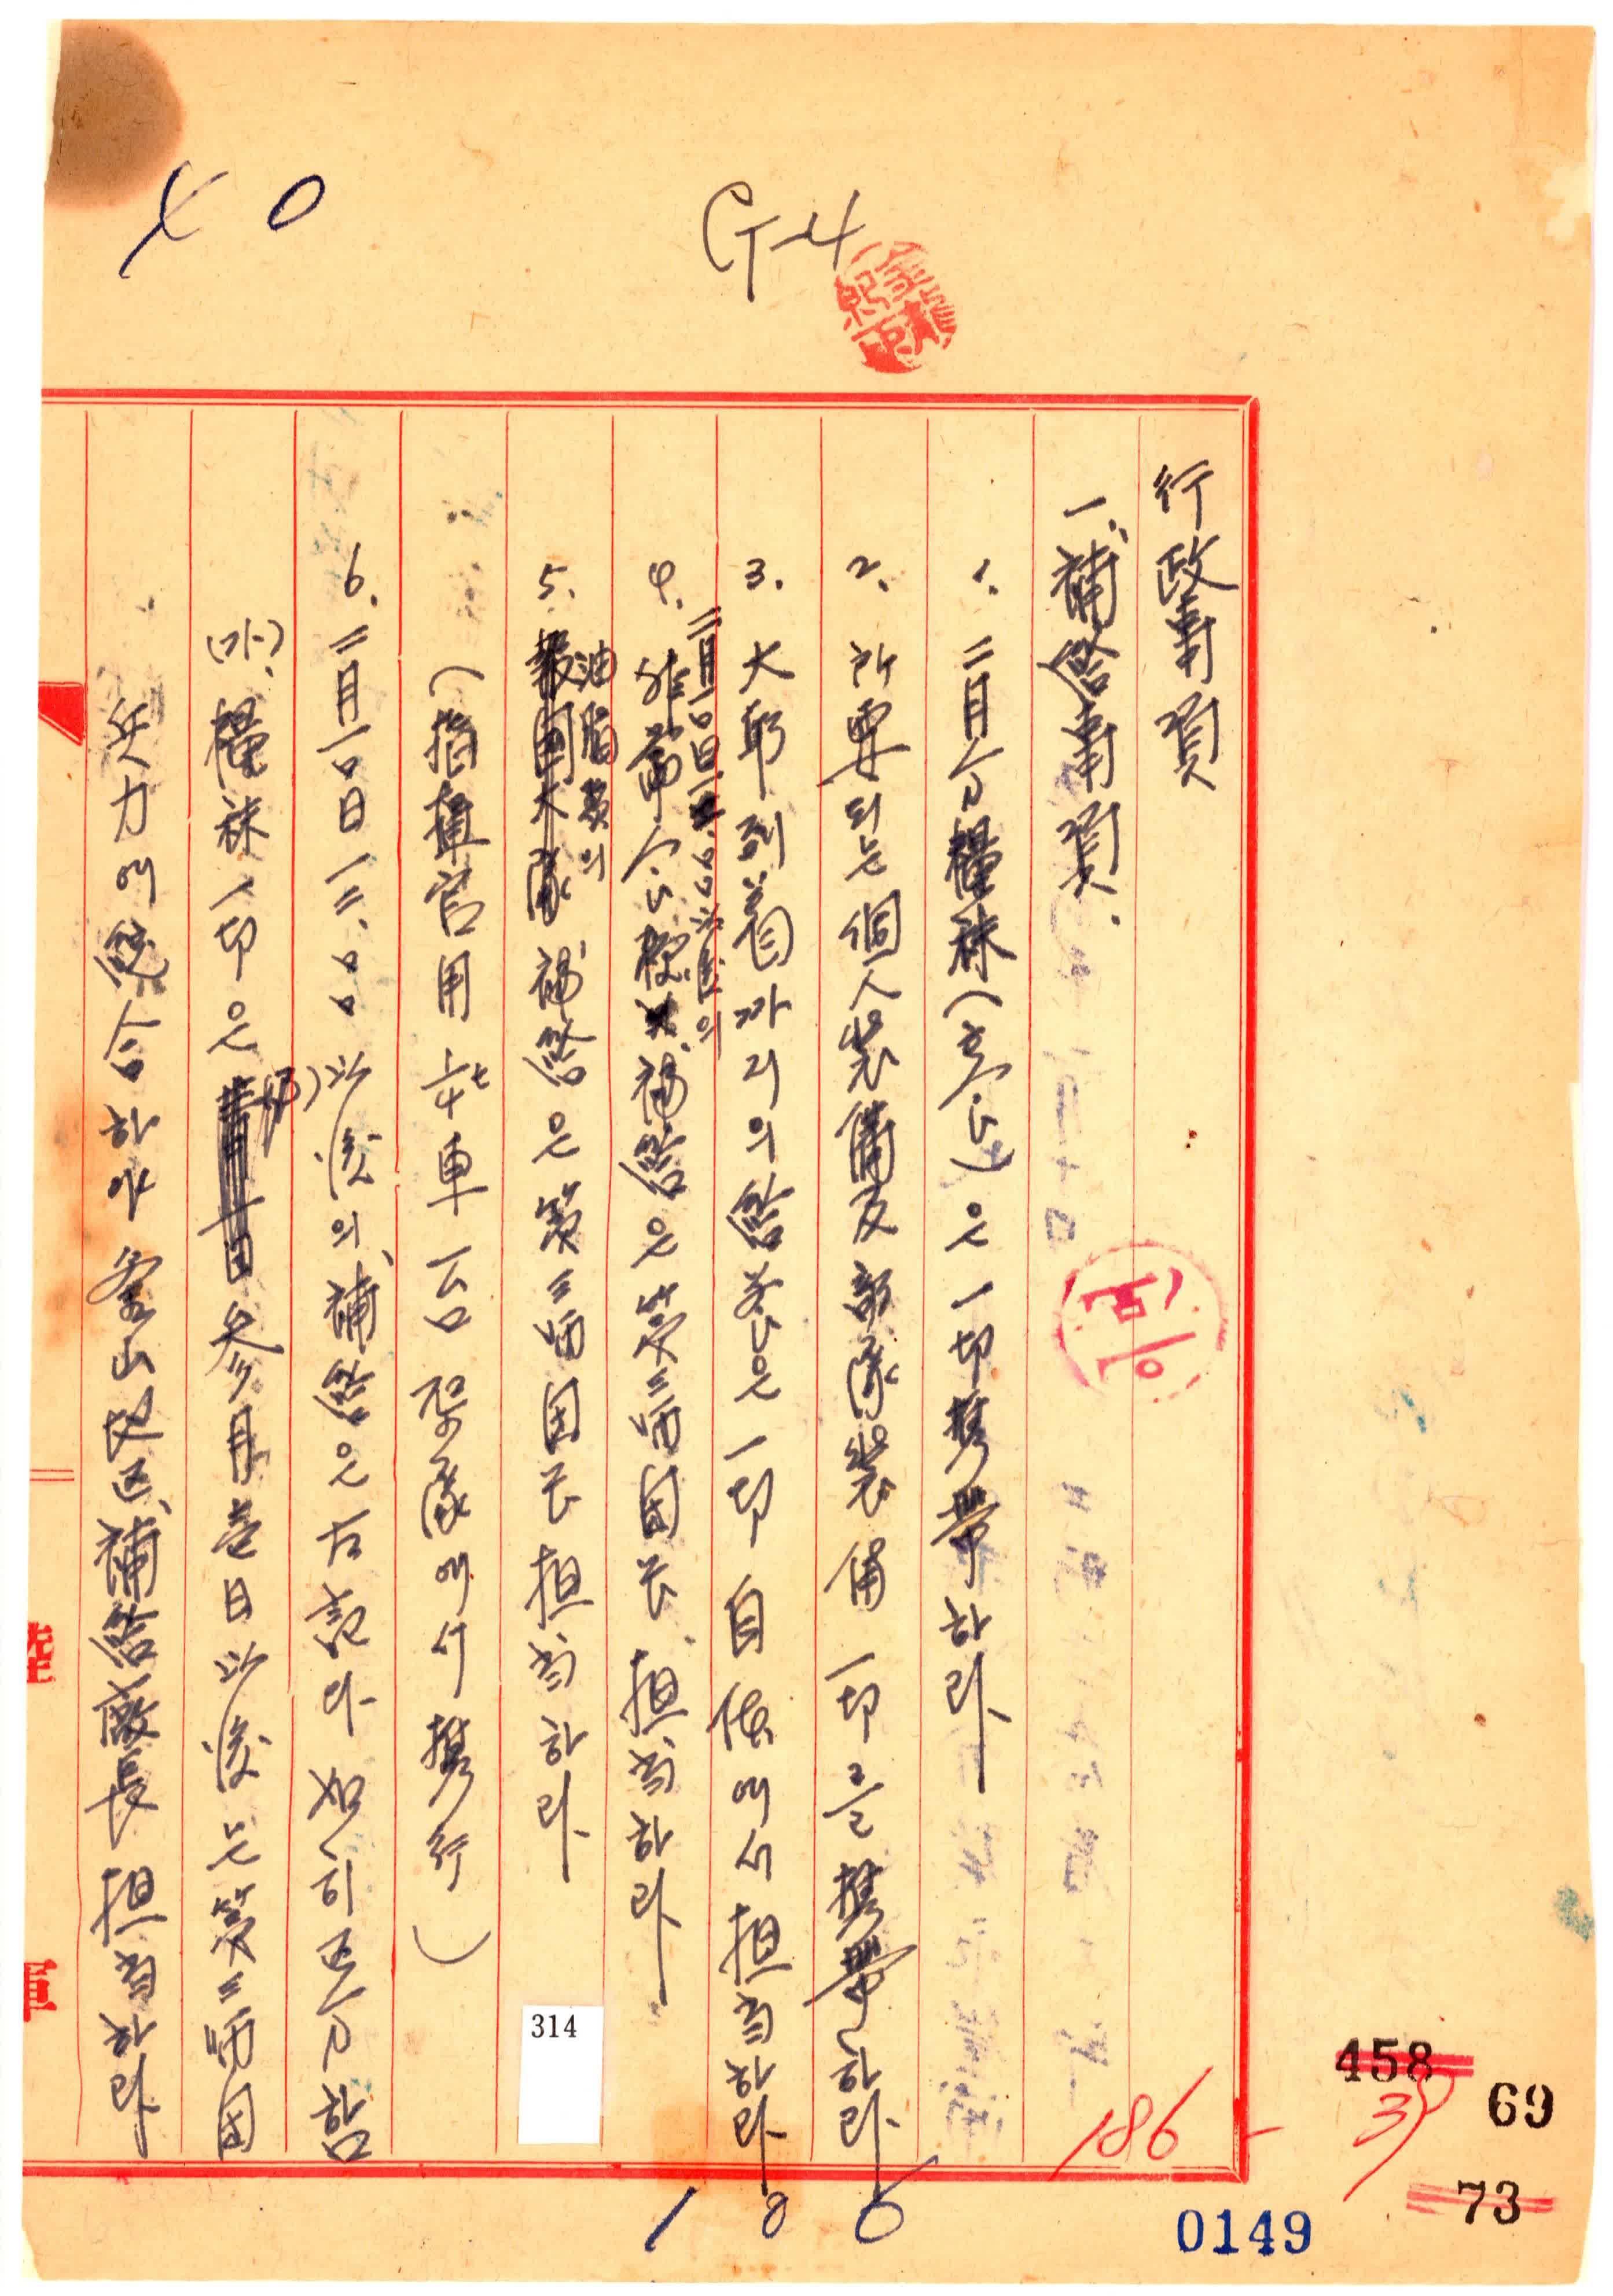 G-4
行政事項
一、補給事項.
1. 二日分糧秣(主食)은 一切携帶하라
2. 所要되는 個人装備及部隊装備 一切를 携帶하라
3. 大邱到着까지의 給養은 一切 自体에서 担当하라
二月一〇日 以後의
4. 補給은 第三師団长 担当하라
油脂類의
5. 補給은 第三師団长 担当하라
(指揮官用 車 一台 部隊에서 携行)
6. 二月一〇日 一二.〇〇 以後의 補給은 右記와 如히 区分함
(가). 糧秣 一切은 参月壱日以後는 第三師団
兵力에 統合하야 釜山地区補給廠長 担当하라
陸
軍
인
314
186
186
458
39
69
73
0149